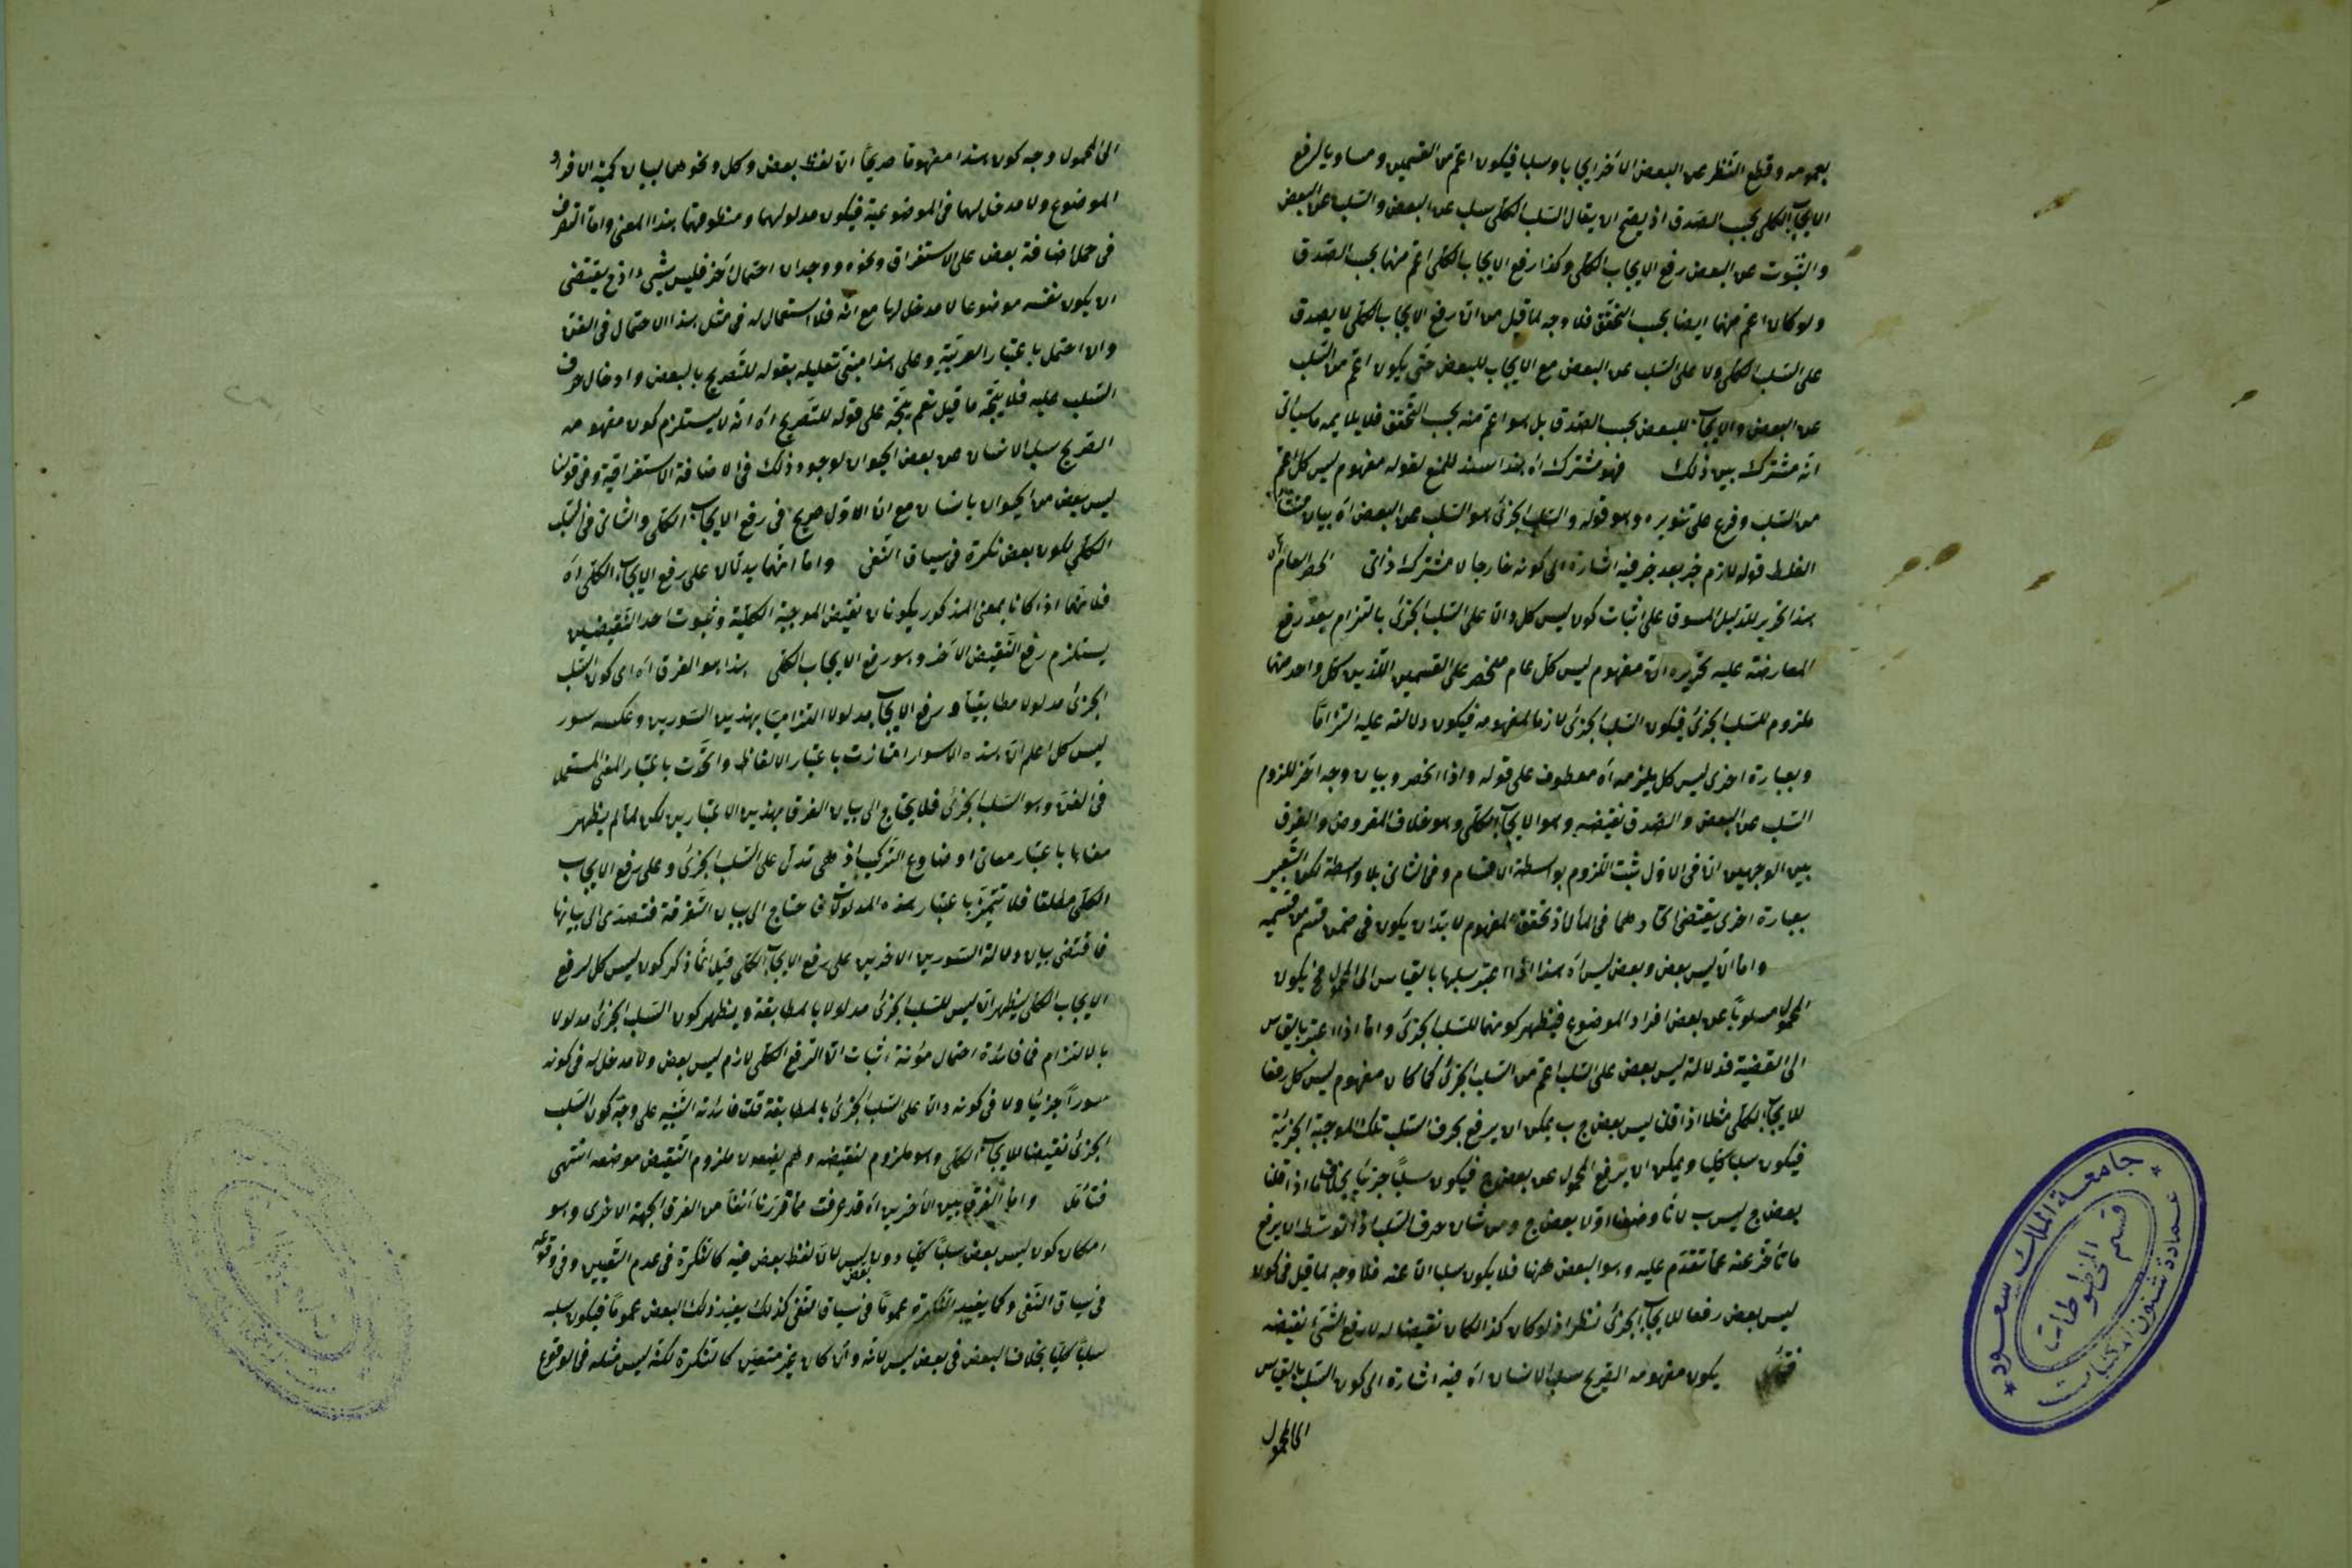 بعمومه وقطع النظر عن البعض الآخر ايجابا وسلبا فيكون اعمّ من القسمين ومساويا لرفع
الايجاب الكلي بحسب الصدق اذ يصح ان يقال السلب الكلي سلب عن البعض والسلب عن البعض
والثبوت عن البعض رفع الايجاب الكلي وكذا رفع الايجاب الكلي اعمّ منها بحسب الصدق
ولو كان اعمّ منهما ايضا بحسب التحقق فلا وجه لما قيل من انّ رفع الايجاب الكلي لا يصدق
على السلب الكلي ولا على السلب عن البعض مع الايجاب للبعض حتى يكون اعمّ من السلب
عن البعض والايجاب للبعض بحسب الصدق بل هو اعمّ منه بحسب التحقق فلا يلايمه ما سيأتي
انه مشترك بين ذلك فهو مشترك اه هذا سند للمنع لقوله مفهوم ليس كل اعمّ
من السلب وفرع على تنويره وهو قوله والسلب الجزئي هو السلب عن البعض اه بيان منشأ
الغلط قوله لازم خبر بعد خبر فيه اشارة الى كونه خارجا لا مشترك ذاتي انحصر العام اه
هذا تحرير للدليل المسوق على اثبات كون ليس كل دالا على السلب الجزئي بالتزام بعد رفع
المعارضة عليه تحريره انّ مفهوم ليس كل عام منحصر على القسمين اللذين كل واحد منهما
ملزوم للسلب الجزئي فيكون السلب الجزئي لازما لمفهومه فيكون دلالته عليه التزاما
وبعبارة اخرى ليس كل يلزمه اه معطوف على قوله واذا انحصر وبيان وجه آخر للزوم
السلب عن البعض والصدق نقيضه وهو الايجاب الكلي وهو خلاف المفروض والفرق
بين الوجهين انّ في الاول ثبت اللزوم بواسطة الاقسام وفي الثاني بلا واسطة لكن التعبير
بعبارة اخرى يقتضي اتحادهما في المآل اذ تحقق المفهوم لا بد ان يكون في ضمن قسم من قسميه
واما انّ ليس بعض وبعض ليس اه هذا اذا اعتبر سلبها بالقياس الى المحمول فح يكون
المحمول مسلوبا عن بعض افراد الموضوع فيظهر كونهما للسلب الجزئي واما اذا اعتبر بالقياس
الى القضية فدلالة ليس بعض على السلب اعم من السلب الجزئي كما كان مفهوم ليس كل رفعا
للايجاب الكلي مثلا اذا قلت ليس بعض ج ب يمكن ان يرفع بحرف السلب تلك الموجبة الجزئية
فيكون سلبا كليا ويمكن ان يرفع المحمول عن بعض ج فيكون سلبا جزئيا بخلاف ما اذا قلت
بعض ج ليس ب لانّا وضعنا اولا بعض ج ومن شان حرف السلب اذا توسط ان يرفع
ما تأخر عنه عما تقدم عليه وهو البعض ههنا فلا يكون سلبا الا عنه فلا وجه لما قيل في كون
ليس بعض رفعا للايجاب الجزئي نظر اذ لو كان كذا لكان نقيضا له لان رفع الشيء نقيضه
فتأمل يكون مفهومه الصريح سلب الانسان اه فيه اشارة الى كون السلب بالقياس
الى المحمول
الى المحمول وجه كون هذا مفهوما صريحا انّ لفظ بعض وكل ونحوهما لبيان كمية الافراد
الموضوع ولا مدخل لهما في الموضوعية فيكون مدلولهما ومنطوقهما هذا المعنى واما التصرف
في حمل اضافة بعض على الاستغراق ونحوه ووجدان احتمال آخر فليس بشيء اذ ح يقتضي
ان يكون نفسه موضوعا لا مدخل لها مع انه فلا استعمال له في مثل هذا الاحتمال في الفن
وان احتمل باعتبار العربية وعلى هذا مبنى تعليله بقوله للتصريح بالبعض وادخال حرف
السلب عليه فلا يتجه ما قيل نعم يتجه على قوله للتصريح اه انه لا يستلزم كون مفهومه
الصريح سلب الانسان عن بعض الحيوان لوجوه ذلك في الاضافة الاستغراقية وفي قولنا
ليس بعض من الحيوان بانسان مع انّ الاول صريح في رفع الايجاب الكلي والثاني في السلب
الكلي لكون بعض نكرة في سياق النفي واما انهما يدلان على رفع الايجاب الكلي اه
فلانهما اذا كانا بمعنى المذكور يكونان نقيض الموجبة الكلية وثبوت احد النقيضين
يستلزم رفع النقيض الآخر وهو رفع الايجاب الكلي هذا هو الفرق اه اي كون السلب
الجزئي مدلولا مطابقيا ورفع الايجاب مدلولا التزاميا بهذين السورين وعكسه سور
ليس كل اعلم انّ هذه الاسوار امتازت باعتبار الالفاظ واتحدت باعتبار المعنى المستعمل
في الفن وهو السلب الجزئي فلا يحتاج الى بيان الفرق بهذين الاعتبارين لكن لما لم يظهر
معناها باعتبار معاني اوضاع التركيب اذ هي تدل على السلب الجزئي وعلى رفع الايجاب
الكلي مطلقا فلا تتميز باعتبار هذه المدلولات فاحتاج الى بيان التفرقة فتصدى الى بيانها
فاقتضى بيان دلالة السورين الاخرين على رفع الايجاب الكلي قيل انما ذكر كون ليس كل لرفع
الايجاب الكلي ليظهر انّ ليس للسلب الجزئي مدلولا بالمطابقة ويظهر كون السلب الجزئي مدلولا
بالالتزام فما فائدة احتمال مؤنة اثبات انّ الرفع الكلي لازم ليس بعض ولا مدخل له في كونه
سورا جزئيا ولا في كونه دالا على السلب الجزئي بالمطابقة قلت فائدته التنبيه على وجه كون السلب
الجزئي نقيضا للايجاب الكلي وهو ملزوم لنقيضه وهم يضعون ملزوم النقيض موضعه انتهى
فتأمل واما الفرق بين الاخرين اه قد عرفت مما قررنا آنفا من الفرق الجهة الاخرى وهو
امكان كون ليس بعض سلبا كليا دون بعض ليس لان لفظ بعض فيه كالنكرة في عدم التعيين وفي وقوعه
في سياق النفي وكما يفيد النكرة عموما في سياق النفي كذلك يفيد ذلك البعض عموما فيكون سلبه
سلبا كليا بخلاف البعض في بعض ليس لانه وان كان غير متعين كالنكرة لكنه ليس مثله في الوقوع
جامعة الملك سعود
عمادة شئون المكتبات
قسم المخطوطات